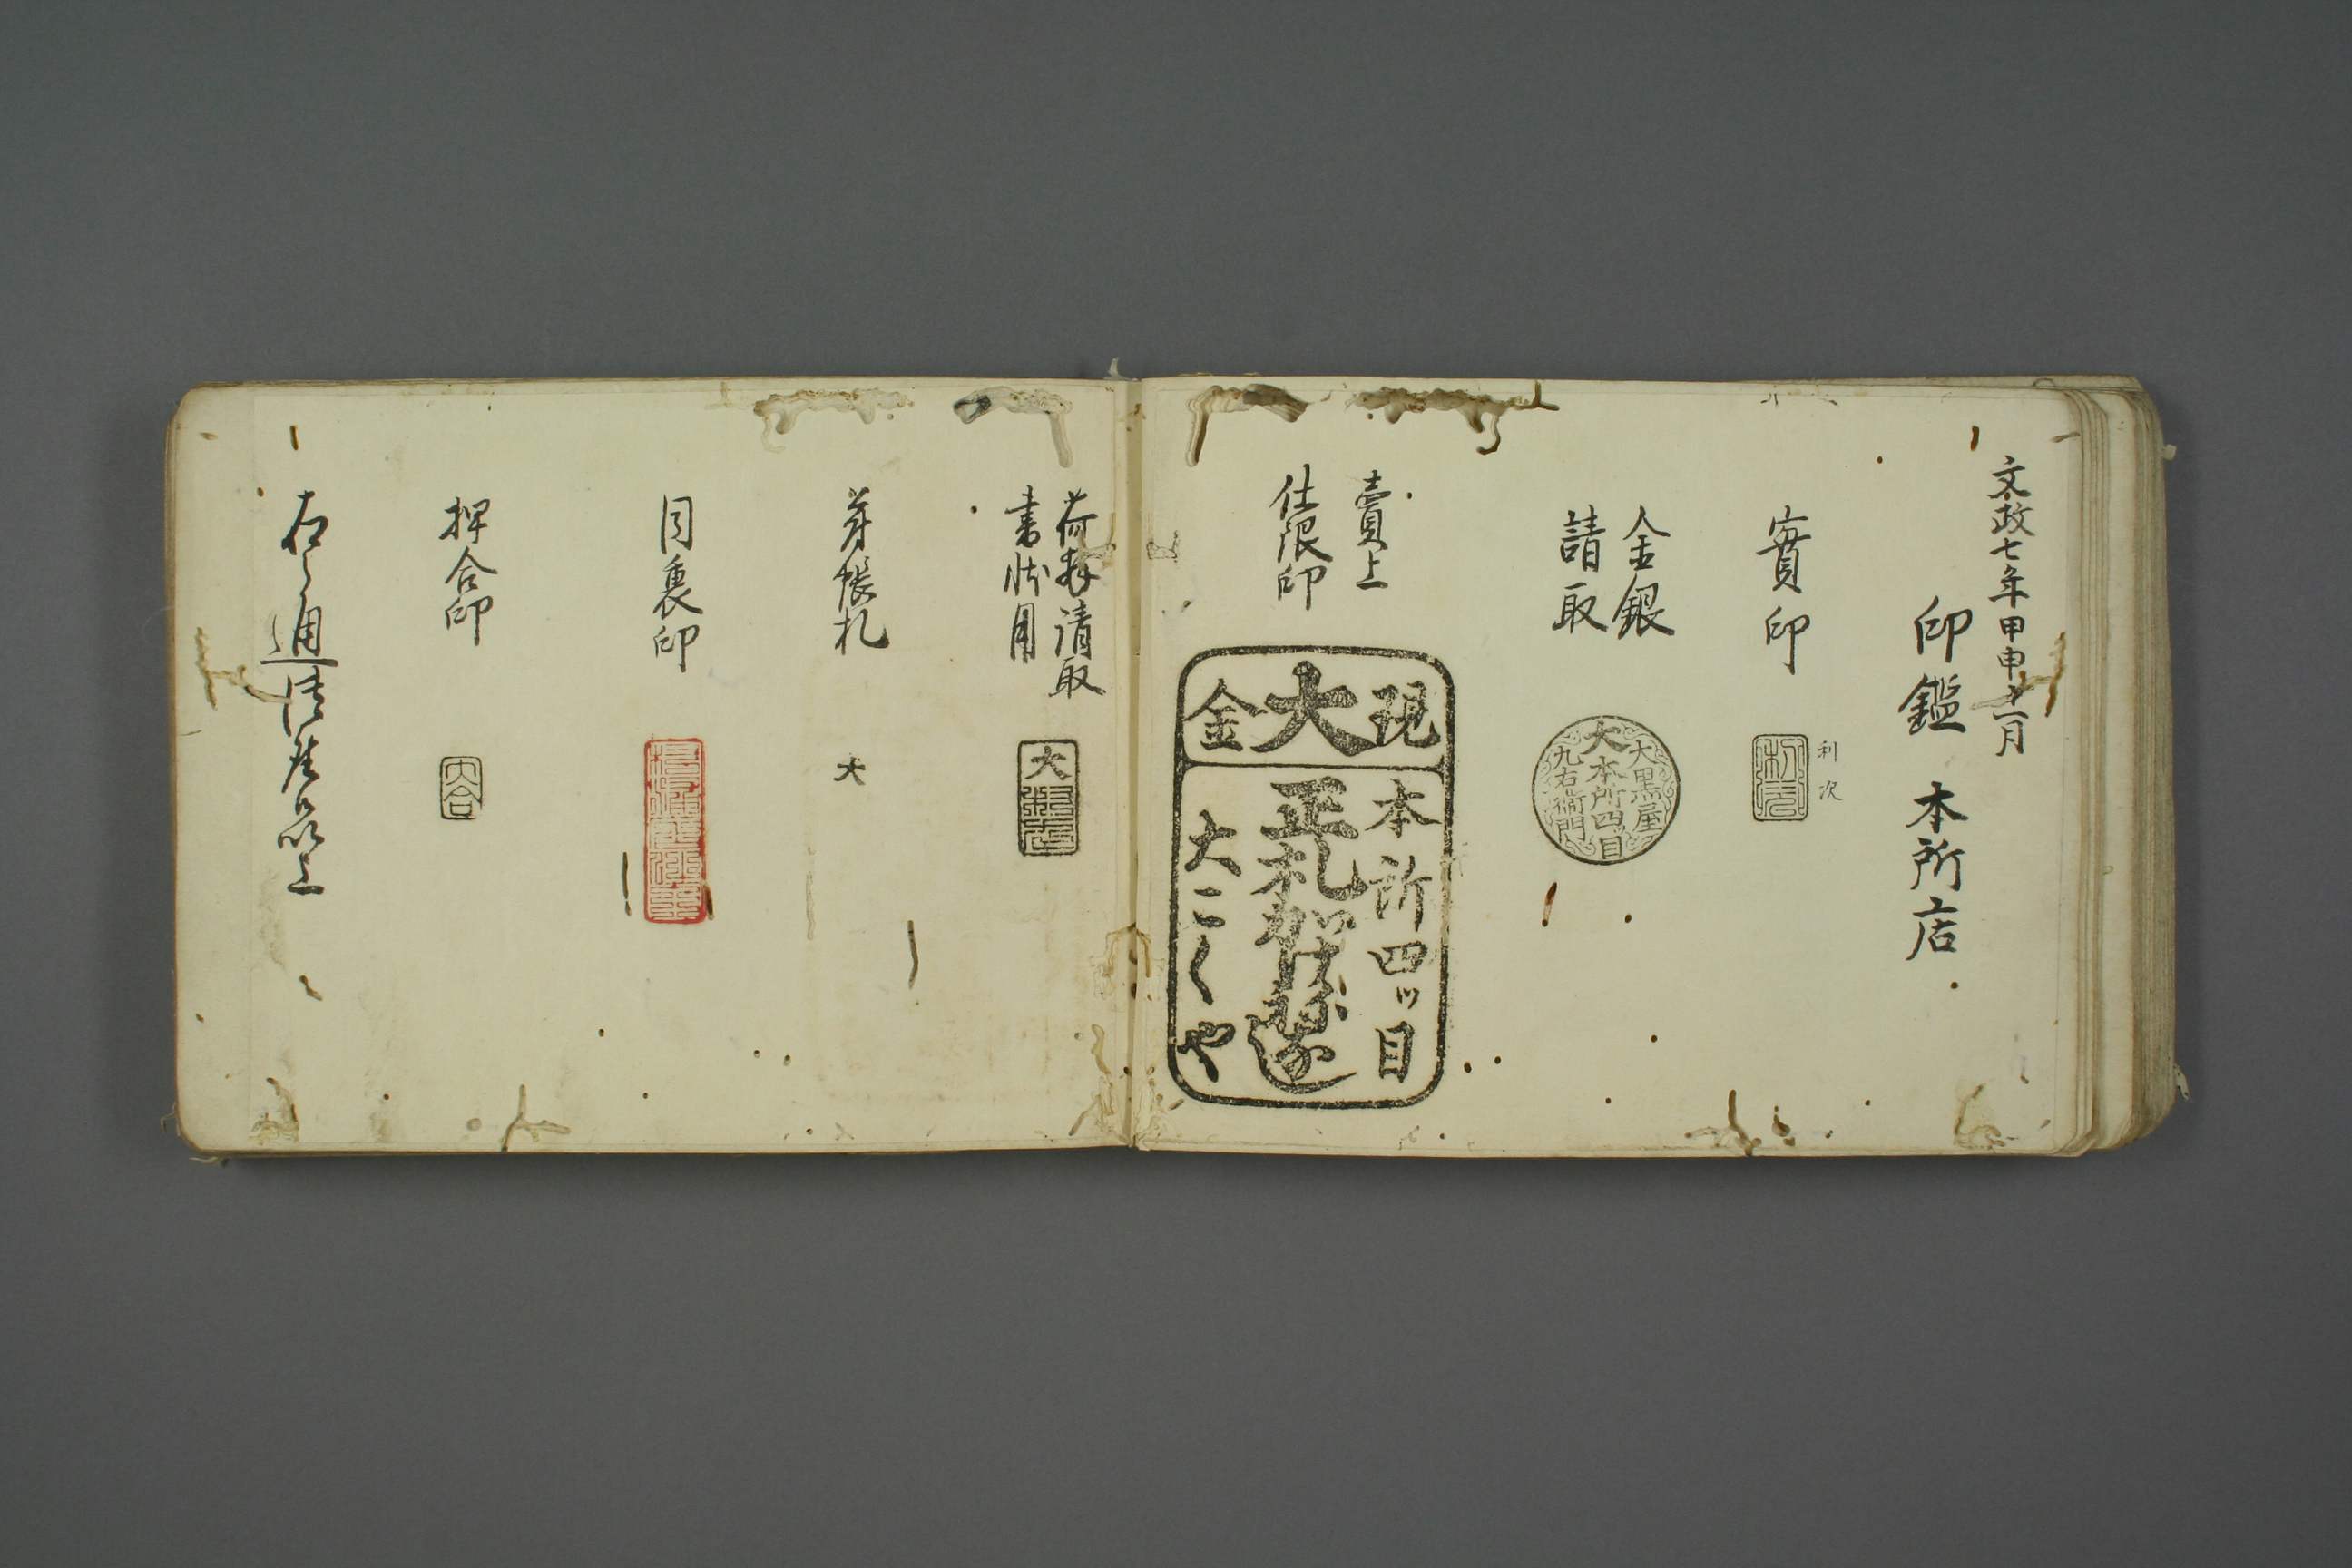 文政七年甲申十一月
印鑑 本所店
實印
利次
金銀
請取
大黒屋
大
本所四目
九右衛門
賣上
仕限印
現大金
本所四ッ目
正札
大こくや
請取
書状用
大
芽帳札
大
目裏印
押合印
大合
右之通御座候以上